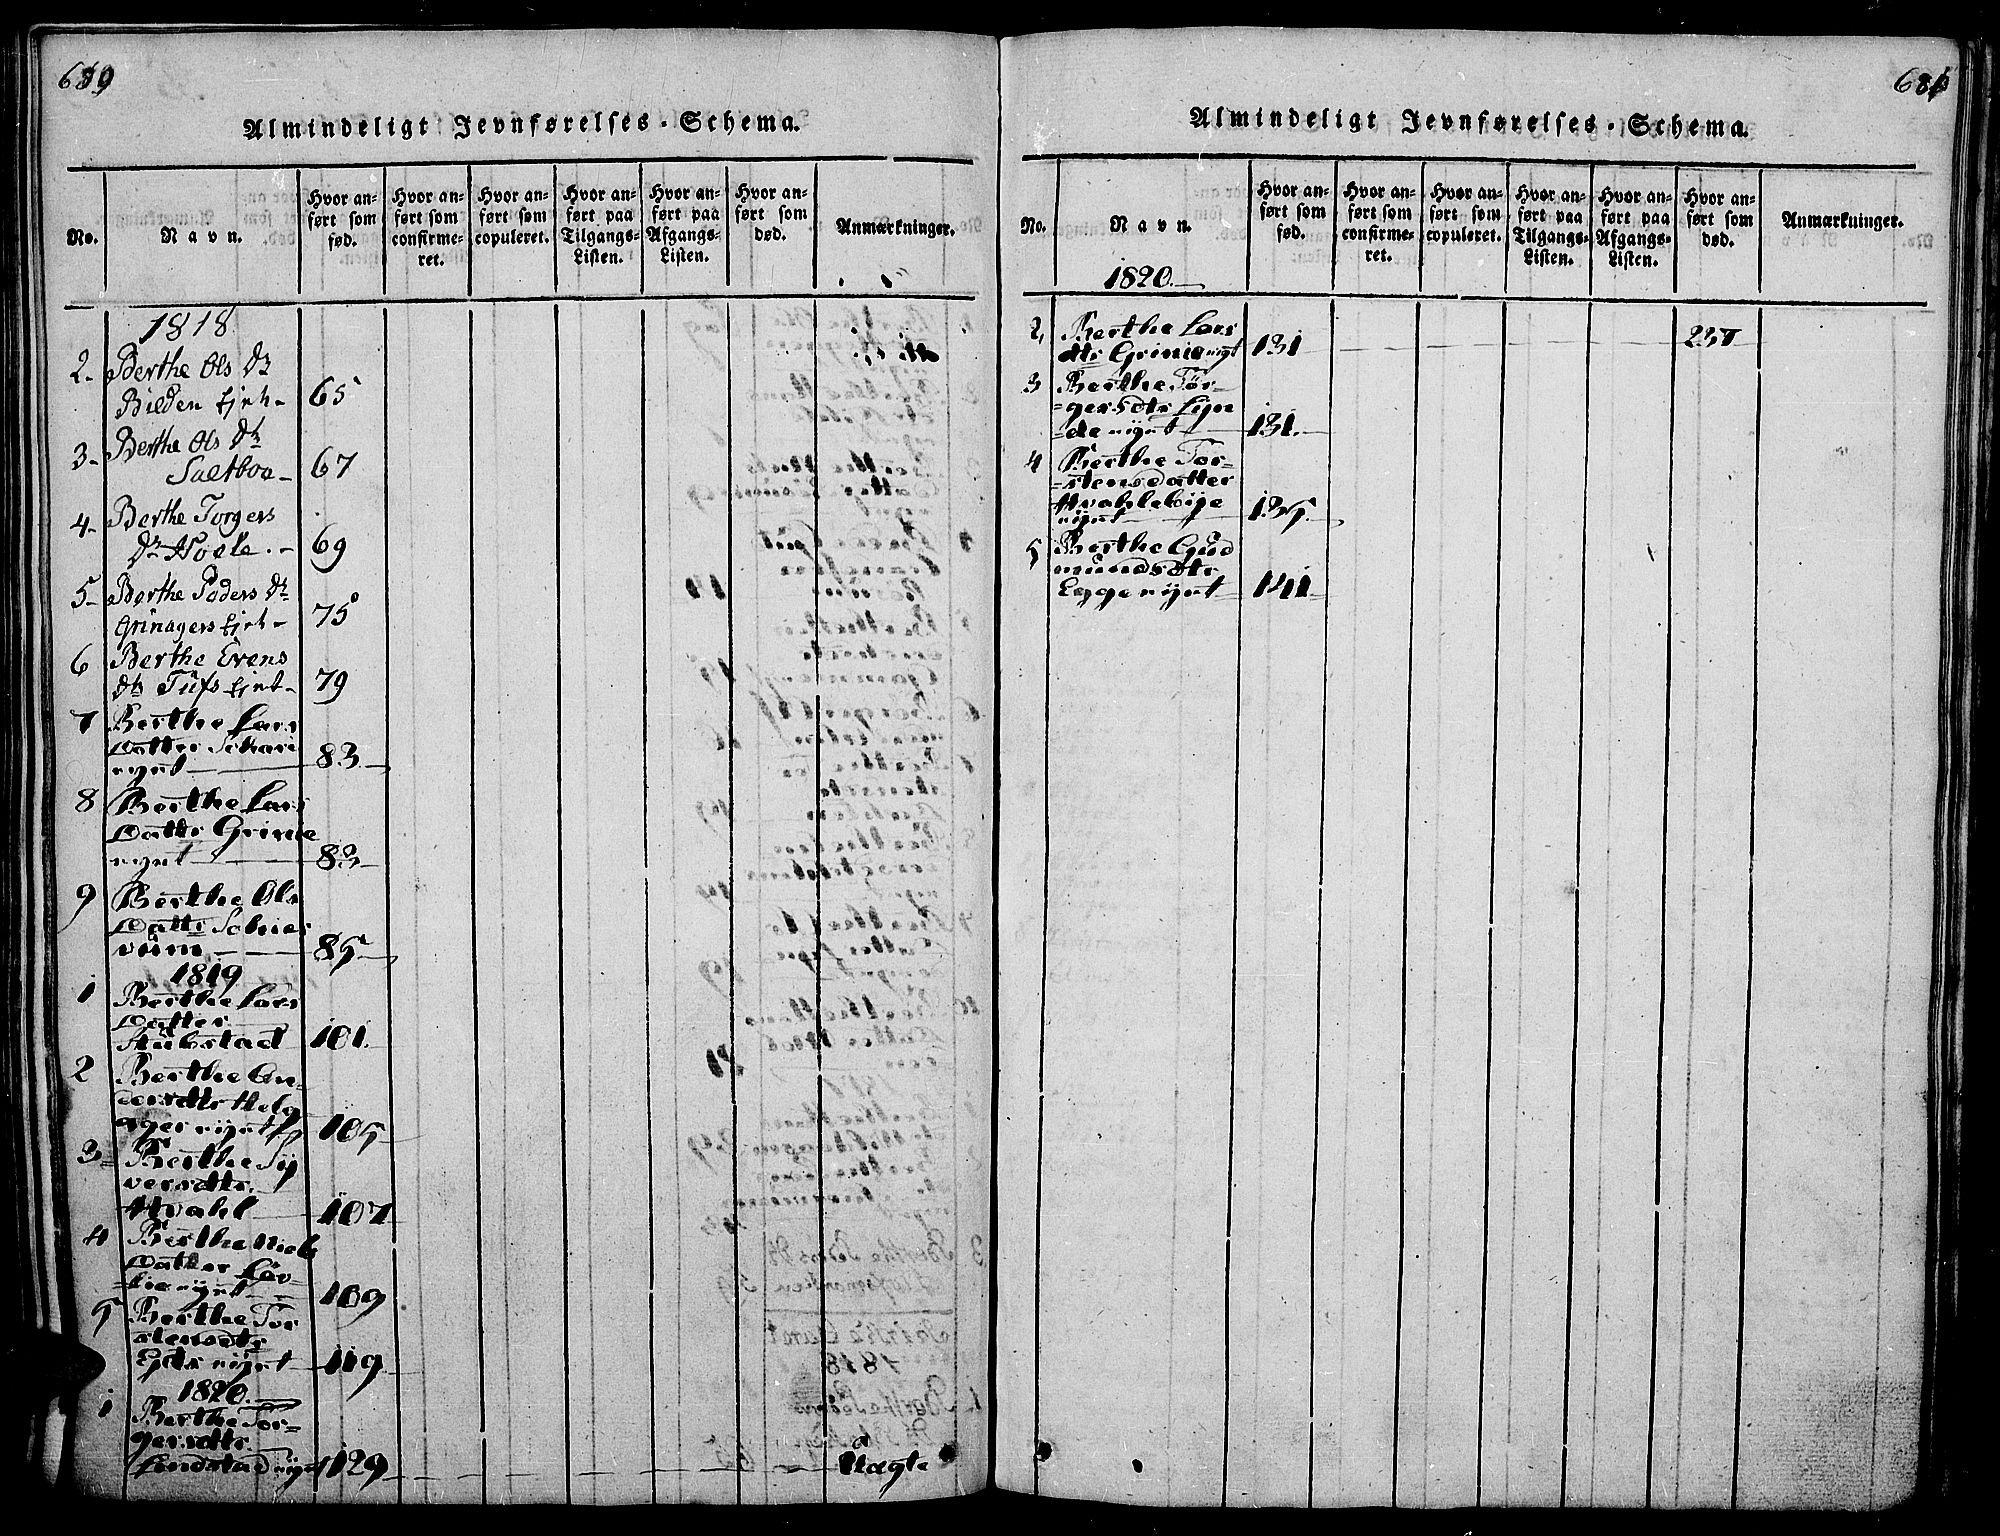 689
Almindeligt Jevnførelses-Schema.
No.
Navn.
Hvor anført som fød.
Hvor anført som confirmeret.
Hvor anført som copuleret.
Hvor anført paa Tilgangs-Listen.
Hvor anført paa Afgangs-Listen.
Hvor anført som død.
Anmærkninger.
1818
2- Berthe Ols Dr
Bilden Ejeh- 65
3- Berthe Ols Dr
Saltboe- 67
4- Berthe Torgers
Dr 69
5- Berthe Peders Dr
Grinagers Ejeh- 75
6 Berthe Evens
Dr Tufs Ejet- 79
7 Berthe Lars
Datter
nynt 83
8 Berthe Lars
Dattr Grinie
nynt 83
9 Berthe Ols
Dattr
85
1819
1 Berthe Lars
Datter
Stubstad 101.
2 Berthe An-
dersdtr Helg
ager nynt 105
3 Berthe Sy
versdtr.
Hvahl 107
4 Berthe Niels
Datter Løv-
lie nynt 109
5 Berthe Tor
stensdtr
nynt 119
1820.
1 Berthe Tor-
gersdtr.
Lindstad nynt 129 Uægte
681
Almindeligt Jevnførelses-Schema.
No.
Navn.
Hvor anført som fød.
Hvor anført som confirmeret.
Hvor anført som copuleret.
Hvor anført paa Tilgangs-Listen.
Hvor anført paa Afgangs-Listen.
Hvor anført som død.
Anmærkninger.
1820.
2, Berthe Lars
dtr Grinie nynt 131 237
3 Berthe Tor-
gersdtr Lyn
de nynt 131.
4 Berthe Tor-
stensdatter
Hvahlebye
nynt 135.
5 Berthe Gud
mundsdtr
Egge nynt 141